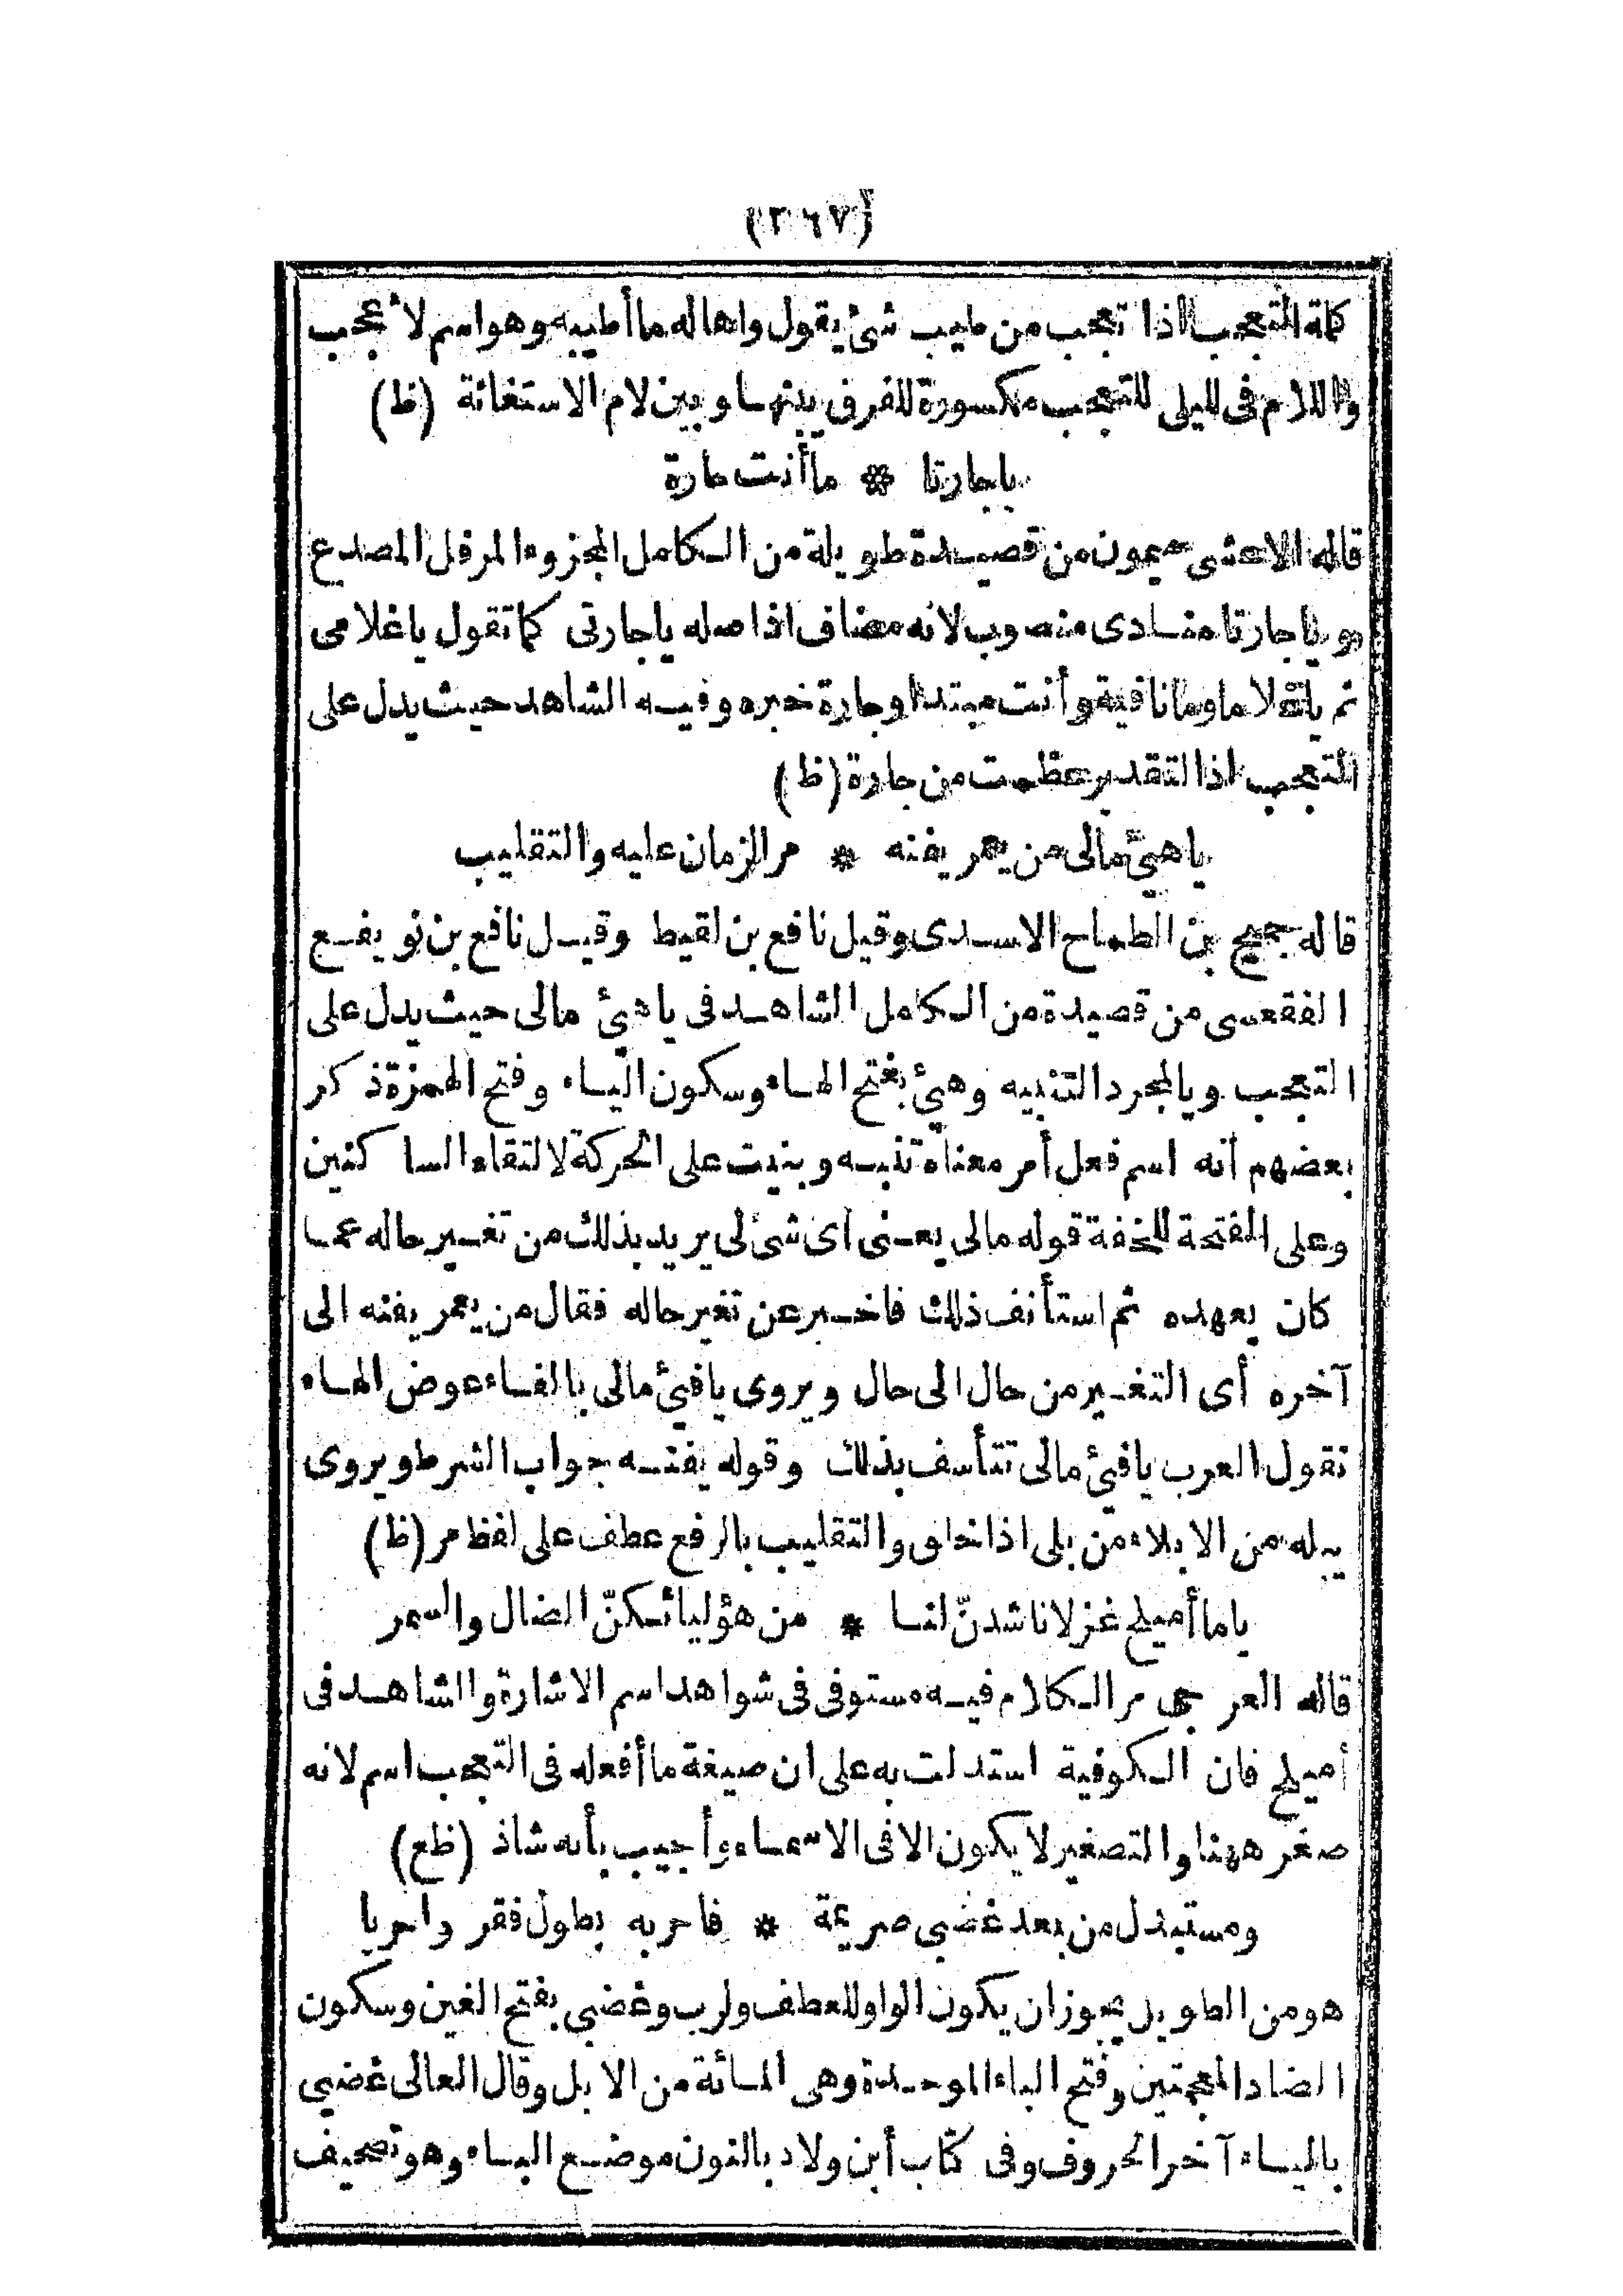 (٣٦٧)
كلمة التعجب اذا تعجب من طيب شئ يقول واها له ما أطيبه وهو اسم لأعجب
واللام فى لليلى للتعجب مكسورة للفرق بينهما وبين لام الاستغاثة (ظ)
ياجارتا * ما أنت جارة
قاله الاعشى ميمون من قصيدة طويلة من الكامل المجزوء المرفل المصدع
هو ياجارتا منادى منصوب لانه مضاف اذ اصله ياجارتى كما تقول ياغلامى
ثم ياغلاما وما نافية وأنت مبتدأ وجارة خبره وفيه الشاهد حيث يدل على
التعجب اذ التقدير عظمت من جارة (ظ)
ياهيئ مالى من يعمر يفنه * مر الزمان عليه والتقليب
قاله جميح بن الطماح الاسدى وقيل نافع بن لقيط وقيل نافع بن نويفع
الفقعسى من قصيدة من الكامل الشاهد فى ياهيئ مالى حيث يدل على
التعجب ويا لمجرد التنبيه وهيئ بفتح الهاء وسكون الياء وفتح الهمزة ذكر
بعضهم أنه اسم فعل أمر معناه تنبه وبنيت على الحركة لالتقاء الساكنين
وعلى الفتحة للخفة قوله مالى يعنى أى شئ لى يريد بذلك من تغير حاله عما
كان يعهده ثم استأنف ذلك فاخبر عن تغير حاله فقال من يعمر يفنه الى
آخره أى التغير من حال الى حال ويروى يافيئ مالى بالفاء عوض الهاء
تقول العرب يافيئ مالى تتأسف بذلك وقوله يفنه جواب الشرط ويروى
يبله من الابلاء من بلى اذا خلق والتقليب بالرفع عطف على لفظ مر (ظ)
ياما أميلح غزلانا شدنّ لنا * من هؤليائكنّ الضال والسمر
قاله العرجى مر الكلام فيه مستوفى فى شواهد اسم الاشارة والشاهد فى
أميلح فان الكوفية استدلت به على ان صيغة ما أفعله فى التعجب اسم لانه
صغر ههنا والتصغير لا يكون الا فى الاسماء وأجيب بأنه شاذ (ظع)
ومستبدل من بعد غضبى صريمة * فاحر به بطول فقر واحريا
هو من الطويل يجوز ان يكون الواو للعطف ولرب وغضبى بفتح الغين وسكون
الضاد المعجمتين وفتح الباء الموحدة وهى المائة من الابل وقال العالى غضيى
بالياء آخر الحروف وفى كتاب أبن ولاد بالنون موضع الياء وهو تصحيف